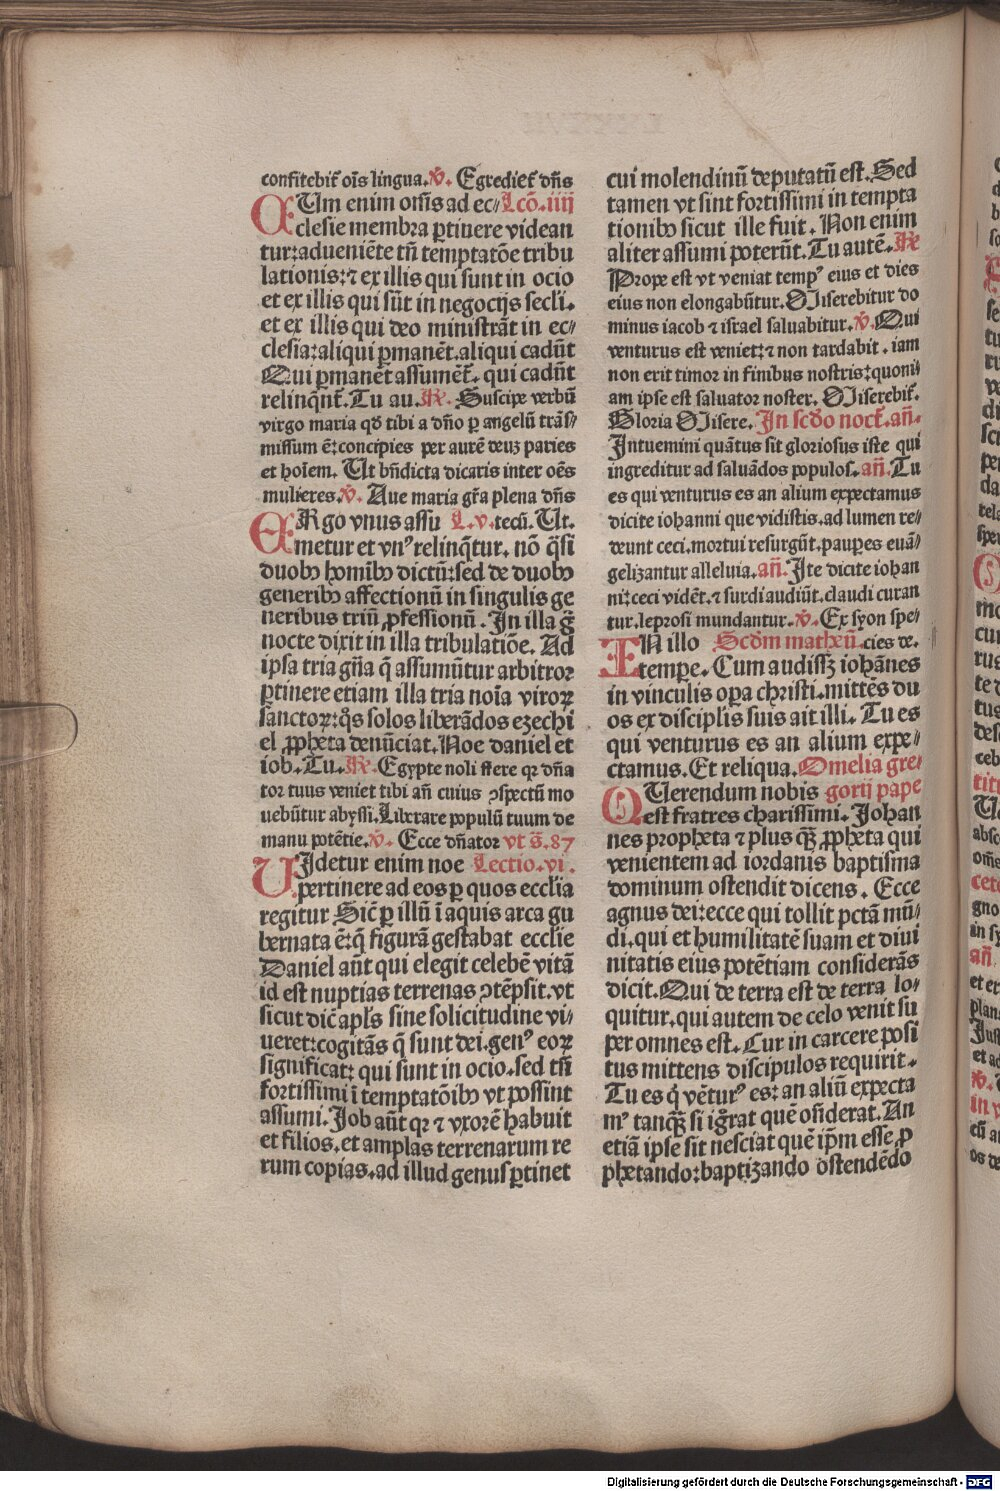 confitebit᷑ oı̄s lingua. ℣. Egrediet᷑ dn̄s
CUm enim om̄s ad ec⸗ Lcō. iiij
clesie membra ꝑtinere videan
tur: adueniēte tn̄ temptatōe tribu
lationis: ⁊ ex illis qui sunt in ocio
et ex illis qui sūt in negocijs secli.
et ex illis qui deo ministrāt in ec⸗
clesia: aliqui ꝑmanēt. aliqui cadūt
Qui ꝑmanēt assumēt᷑. qui cadūt
relinq̄nt᷑. Tu au. ℟. Suscipe verbū
virgo maria qd̄ tibi a dn̄o ꝑ angelū trās⸗
missum ē: concipies per aurē deuꝫ paries
et hoı̄em. Ut bn̄dicta dicaris inter oēs
mulieres. ℣. Aue maria gr̄a plena dn̄s
ERgo vnus assu L. v. tecū. Ut.
metur et vnꝰ relinq̄tur. nō q̄si
duobꝫ homı̄bꝫ dictū: sed de duobꝫ
generibꝫ affectionū in singulis ge
neribus triū ꝓfessionū. In illa g̃
nocte dixit in illa tribulatiōe. Ad
ipsa tria gn̄a q̄ assumūtur arbitror
ꝑtinere etiam illa tria noı̄a viroꝝ
sanctoꝝ: q̄s solos liberādos ezechi
el ꝓpheta denūciat. Noe daniel et
iob. Tu. ℟. Egypte noli flere qꝛ dn̄a
tor tuus veniet tibi an̄ cuius ↄspectū mo
uebūtur abyssi. Liberare populū tuum de
manu potētie. ℣. Ecce dn̄ator vt s̄. 87
UIdetur enim noe Lectio. vi.
pertinere ad eos ꝑ quos ecclı̄a
regitur Sic̄ ꝑ illū ī aquis arca gu
bernata ē: q̄ figurā gestabat ecclie
Daniel aūt qui elegit celebē vitā
id est nuptias terrenas ↄtēpsit. vt
sicut dic̄ apl̄s sine solicitudine vi⸗
ueret: cogitās q̄ sunt dei. genꝰ eoꝝ
significat: qui sunt in ocio. sed tn̄
fortissimi ī temptatōibꝫ vt possint
assumi. Job aūt qꝛ ⁊ vxorē habuit
et filios. et amplas terrenarum re
rum copias. ad illud genus ꝑtinet
cui molendinū deputatū est. Sed
tamen vt sint fortissimi in tempta
tionibꝫ sicut ille fuit. Non enim
aliter assumi poterūt. Tu autē. ℟
Prope est vt veniat tempꝰ eius et dies
eius non elongabūtur. Miserebitur do
minus iacob ⁊ israel saluabitur. ℣. Qui
venturus est veniet: ⁊ non tardabit. iam
non erit timor in finibus nostris: quoni⸗
am ipse est saluator noster. Miserebit᷑.
Gloria Misere. In scd̄o noct᷑. an̄.
Intuemini quātus sit gloriosus iste qui
ingreditur ad saluādos populos. an̄. Tu
es qui venturus es an alium expectamus
dicite iohanni que vidistis. ad lumen re⸗
deunt ceci. mortui resurgūt. pauꝑes euā⸗
gelizantur alleluia. an̄. Ite dicite iohan
ni: ceci vidēt. ⁊ surdi audiūt. claudi curan
tur. leprosi mundantur. ℣. Ex syon spe⸗
IN illo Scd̄m matheū. cies de.
tempe. Cum audissꝫ iohānes
in vinculis oꝑa christi. mittēs du
os ex discipl̄is suis ait illi. Tu es
qui venturus es an alium expe⸗
ctamus. Et reliqua. Omelia gre⸗
QUerendum nobis gorij pape
est fratres charissimi. Johan
nes propheta ⁊ plus qꝫ̄ ꝓpheta qui
venientem ad iordanis baptisma
dominum ostendit dicens. Ecce
agnus dei: ecce qui tollit pctā mū⸗
di. qui et humilitatē suam et diui
nitatis eius potētiam considerās
dicit. Qui de terra est de terra lo⸗
quitur. qui autem de celo venit su
per omnes est. Cur in carcere posi
tus mittens discipulos requirit.
Tu es q̇ vēturꝰ es: an aliū expecta
mꝰ tanqꝫ̄ si ig̃rat quē ostenderat. An
etiā ipse sit nesciat quē ip̄m esse ꝓ
phetando: baptizando ostendēdo
Digitalisierung gefördert durch die Deutsche Forschungsgemeinschaft - DFG